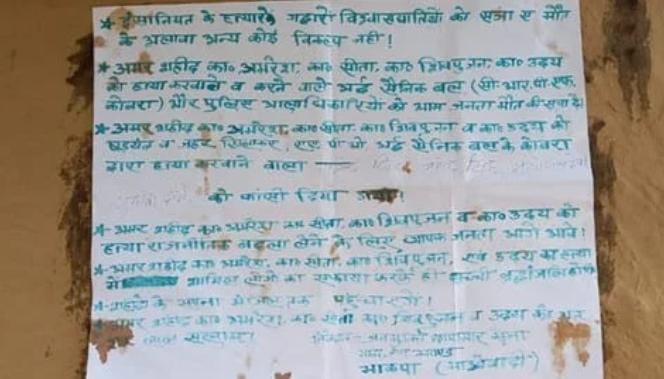 * इंसानियत के हत्यारे गद्दारो विश्वासघातियो को सजा ए मौत
के अलावा अन्य कोई विकल्प नहीं!
* अमर शहीद का० अमरेश, का० सीता, का० शिवपुजन, का० उदय
की हत्या करवाने व करने वाले अर्द्ध सैनिक बल (सी.आर.पी.एफ
कोबरा) और पुलिस आलाधिकारियो को आम जनता मौत की सजा दे।
* अमर शहीद का० अमरेश, का० सीता, का० शिवपुजन व का० उदय को
षडयंत्र व जहर खिलाकर, एस पी ओ अर्द्ध सैनिक बल के कोबरा
द्वारा हत्या करवाने वाला
को फांसी दिया गया!
* अमर शहीद का० अमरेश, का० सीता, का० शिवपुजन व का० उदय की
हत्या राजनीतिक बदला लेने के लिए व्यापक जनता आगे आवे!
* अमर शहीद का० अमरेश, का० सीता, का० शिवपुजन, एवं उदय का हत्या
में शामिल लोगो का सफाया करके ही सच्ची श्रद्धांजलि होगी
* शहीदो के अपना मंजिल तक पहुंचाएंगे!
* अमर शहीद का० अमरेश, का० सीता, का० शिवपुजन व उदय को
लाल सलाम!
भाकपा (माओवादी)